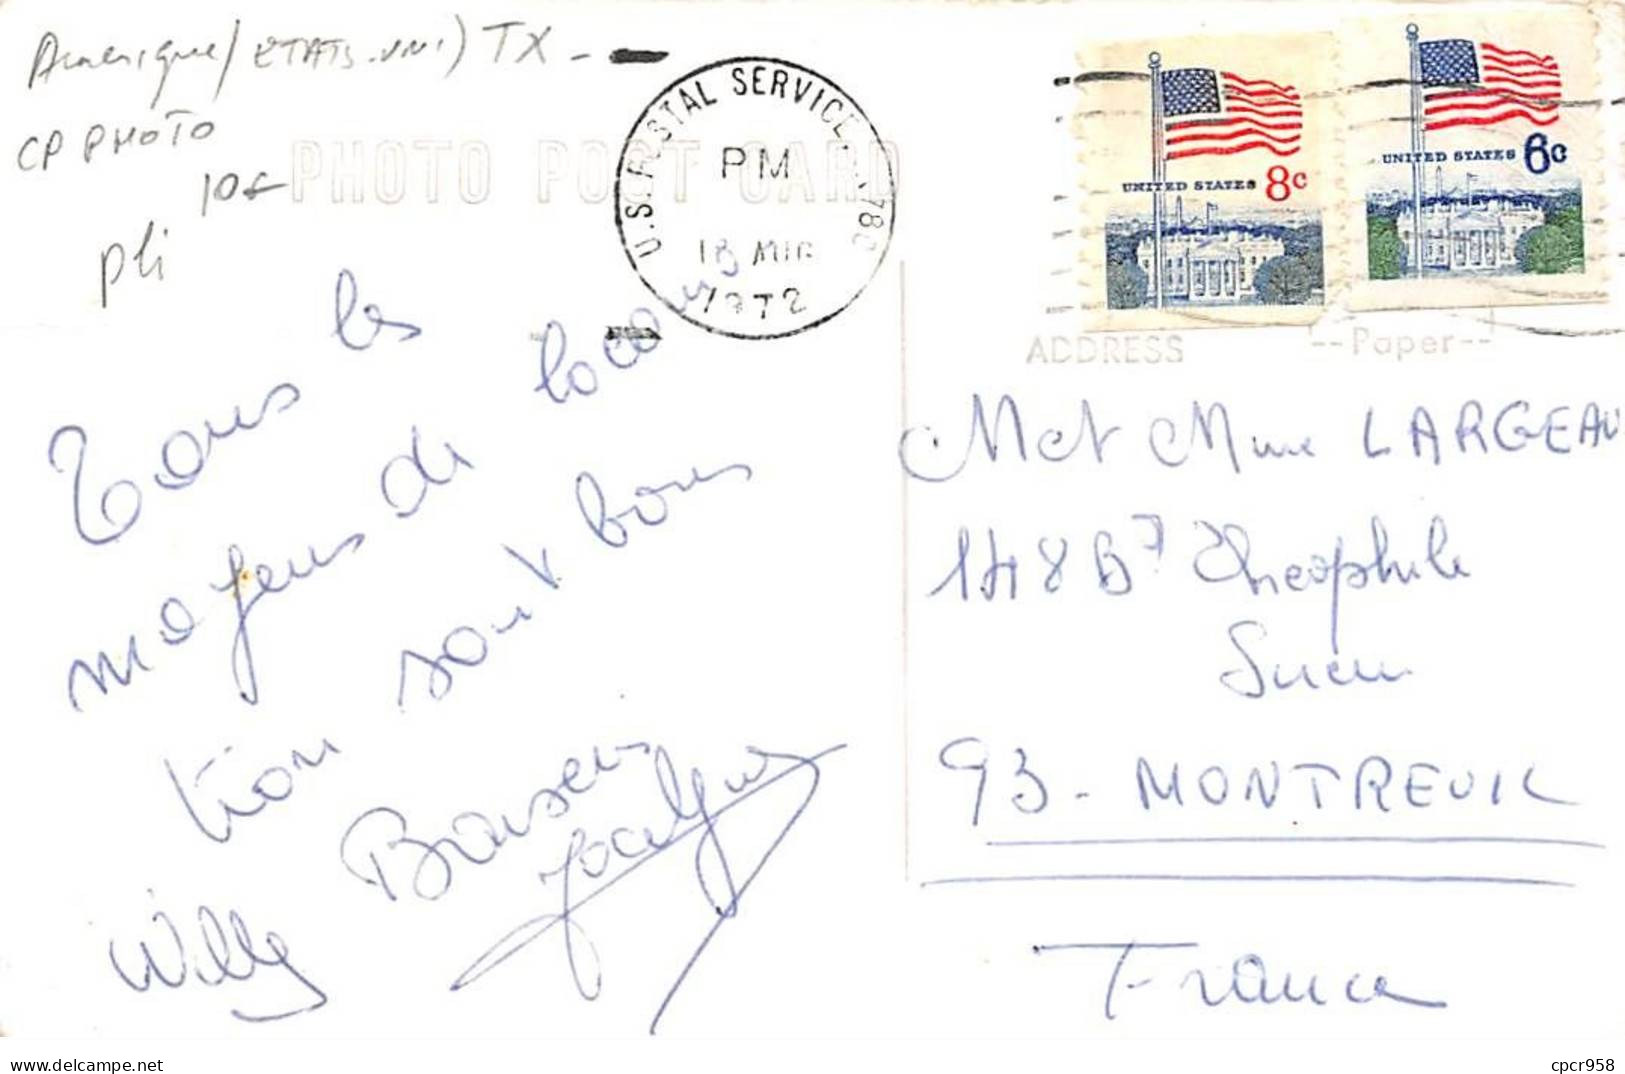 Amerique / ETATS-UNI) TX -
CP PHOTO
10€
pli
PHOTO POST CARD
U.S. POSTAL SERVICE, 780
PM
1972
UNITED STATES 8c
UNITED STATES 6c
ADDRESS
--Paper--
Tous les
moyens de locomo
tion sont bons
Baisers
Willy Jocelyne
M et Mme LARGEAU
148 Bd Theophile
Sueur
93 - MONTREUIL
France
cpcr958